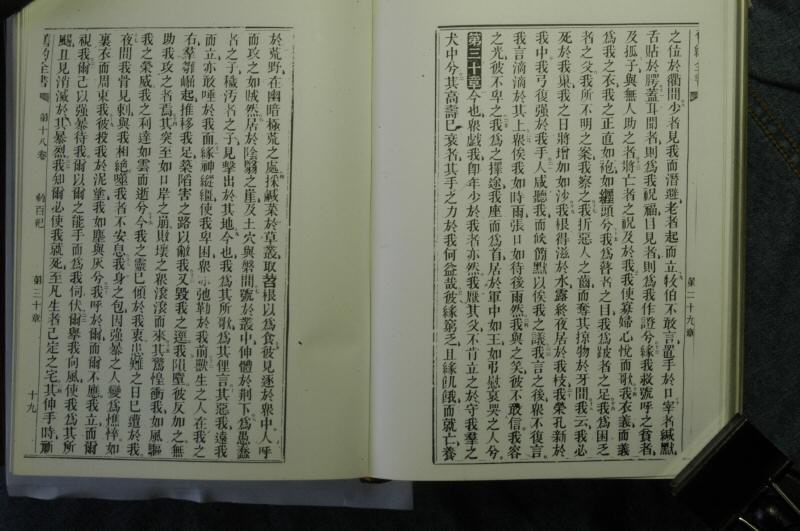 舊約全書
第二十九章
之位於衢間少者見我而潛避老者起而立牧伯不敢言置手於口宰者緘默
舌貼於腭蓋耳聞者則爲我祝福目見者則爲我作證兮緣我救號呼之貧者
及孤子與無人助之者將亡者之祝及於我我使寡婦心悅而歌我衣義而義
爲我之衣我之正直如袍如纓頭兮我爲瞽者之目我爲跛者之足我爲困乏
者之父我所不明之案我察之我折惡人之齒而奪其掠物於牙間我云我必
死於我巢我之日將增加如沙我根得滋於水露終夜居於我枝我榮孔新於
我中我弓復強於我手人咸聽我而候簡默以俟我之議我言之後衆不復言
我言滴滴於其上衆俟我如時雨張口如待後雨然我與之笑彼不敢信我容
之光彼不卑之我爲之擇途我座而爲首居於軍中如王如弔慰哀哭之人兮
第三十章今也衆戲我卽年少於我者亦然我厭其父不肯立之於守我羣之
犬中兮其高壽已衰者其手之力於我何益哉彼緣窮乏且緣飢餓而就亡養
於荒野在幽暗極荒之處採鹹菜於草叢取苕根以爲食彼見逐於衆中人呼
而攻之如賊然居於陰翳之崖及土穴與磐間號於叢中伸體於荆下爲愚蠢
者之子穢汚者之子見擊出於其地今也我爲其所歌爲其俚言其惡我遠我
而立亦敢唾於我面緣神縱繩使我卑困衆亦弛勒於我前獸生之人在我之
右羣劉崛起推移我足築陷害之路以敵我又毀我之逕我隕墜彼反加之無
助我攻之者爲其突至如口岸之崩敗壞之衆滾滾而來其驚惶衝我如風驅
我之榮威我之利達如雲而逝兮今我之靈已傾於我裏出難之日已遭於我
夜間我骨見刺與我相絕噬我者不安息我身之包因強暴之人變爲憔悴如
裏衣而周束我彼投我於泥塗我如塵與灰兮我呼於爾而爾不應我立而爾
視我爾已以強暴待我爾以爾之能手而爲我伺伏爾舉我向風使我爲其所
颺且見消滅於其暴烈我知爾必使我就死至凡生者已定之宅其伸手時
舊約全書
第十八卷
約百記
第三十章
十九